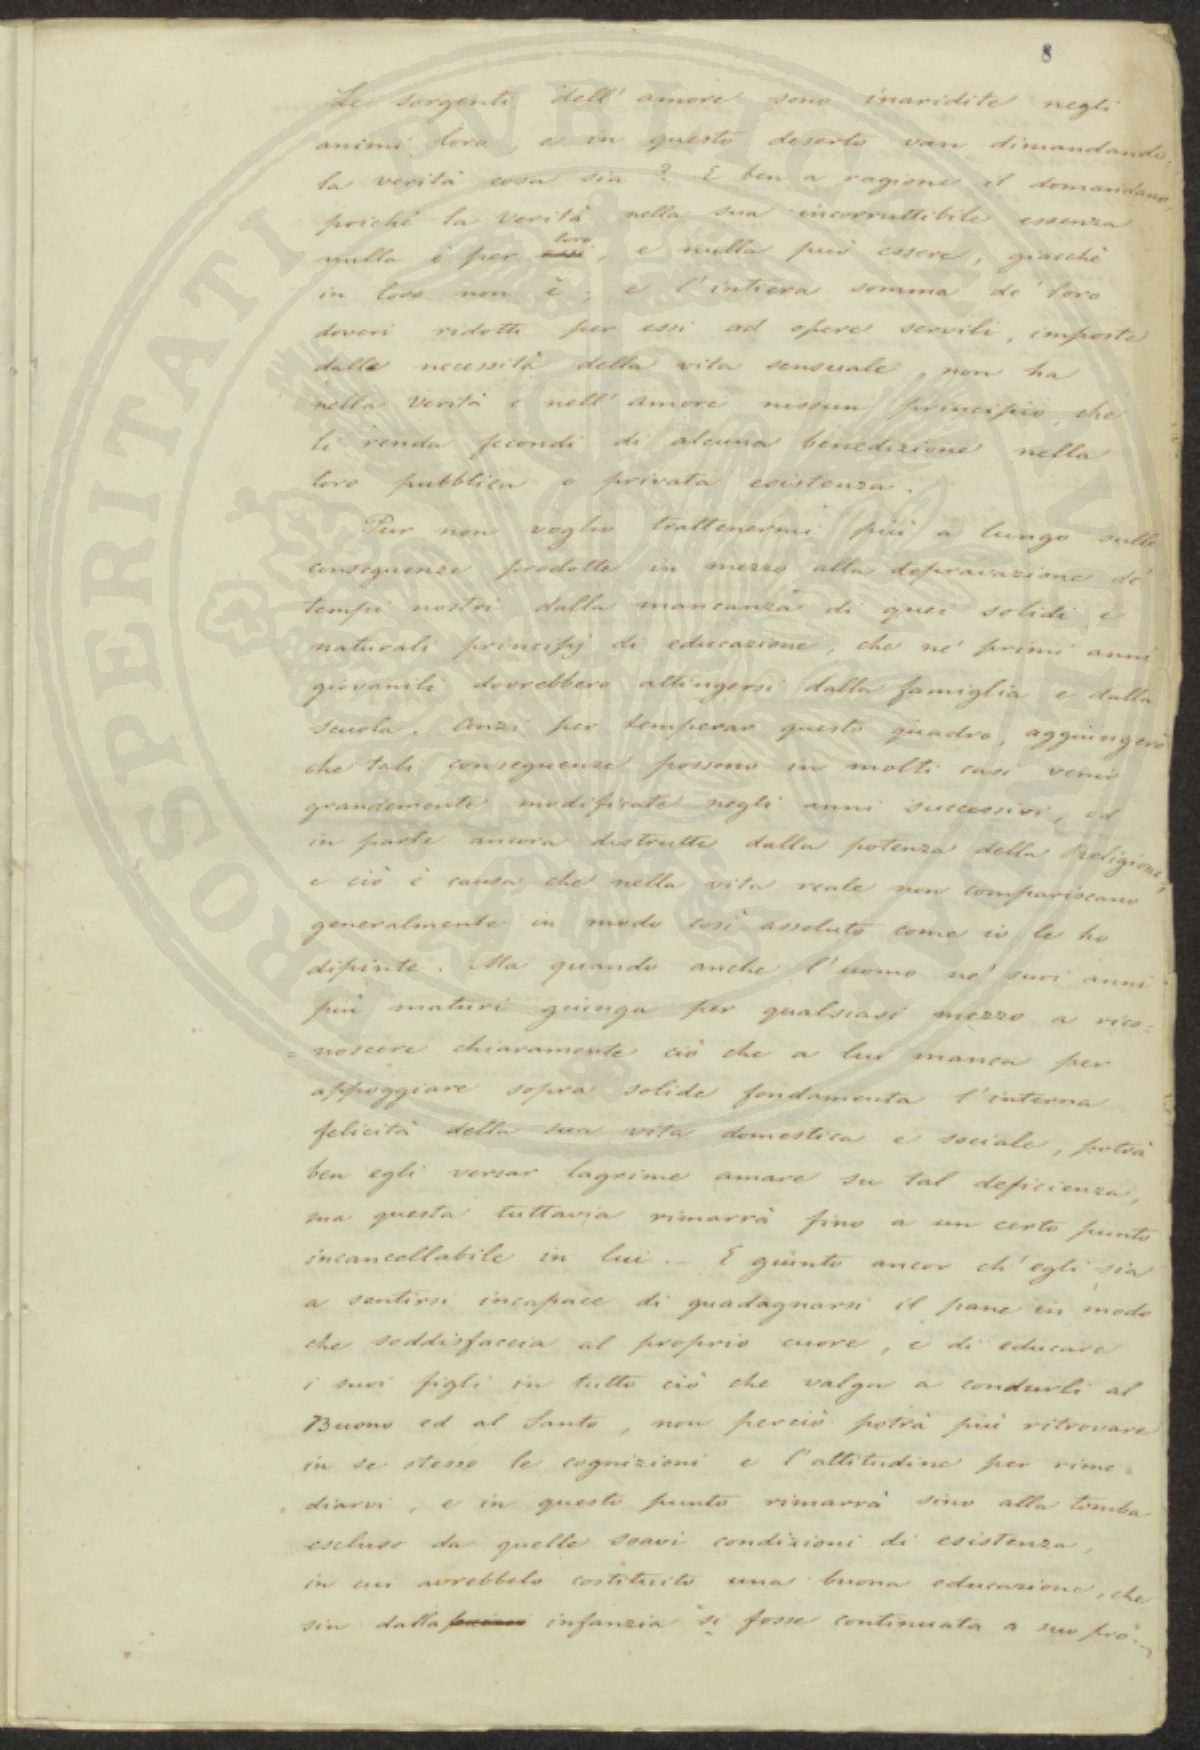 8
Le sorgenti dell'amore sono inaridite negli
animi loro, e in questo deserto van dimandando:
la verità cosa sia? E ben a ragione il domandano,
poiché la verità nella sua incorruttibile essenza
nulla è per loro, e nulla può essere, giacchè
in loro non è; e l'intiera somma de' loro
doveri ridotti per essi ad opere servili, imposte
dalla necessità della vita sensuale, non ha
nella Verità e nell'Amore nissun principio che
li renda fecondi di alcuna benedizione nella
loro pubblica o privata esistenza.
Pur non voglio trattenermi più a lungo sulle
conseguenze prodotte in mezzo alla depravazione de'
tempi nostri dalla mancanza di quei solidi e
naturali principj di educazione, che ne' primi anni
giovanili dovrebbero attingersi dalla famiglia e dalla
scuola. Anzi per temperar questo quadro, aggiungerò
che tali conseguenze possono in molti casi venir
grandemente modificate negli anni successivi, ed
in parte ancora distrutte dalla potenza della Religione,
e ciò è causa che nella vita reale non compariscano
generalmente in modo così assoluto come io le ho
dipinte. Ma quando anche l'uomo ne' suoi anni
più maturi giunga per qualsiasi mezzo a rico=
=noscere chiaramente ciò che a lui manca per
appoggiare sopra solide fondamenta l'interna
felicità della sua vita domestica e sociale, potrà
ben egli versar lagrime amare su tal deficienza,
ma questa tuttavia rimarrà fino a un certo punto
incancellabile in lui. — E giunto ancor ch'egli sia
a sentirsi incapace di guadagnarsi il pane in modo
che soddisfaccia al proprio cuore, e di educare
i suoi figli in tutto ciò che valga a condurli al
Buono ed al Santo, non perciò potrà più ritrovare
in se stesso le cognizioni e l'attitudine per rime=
=diarvi, e in questo punto rimarrà sino alla tomba
escluso da quelle soavi condizioni di esistenza,
in cui avrebbelo costituito una buona educazione, che
sin dalla infanzia si fosse continuata a suo prò.
PROSPERITATI PVBLICAE